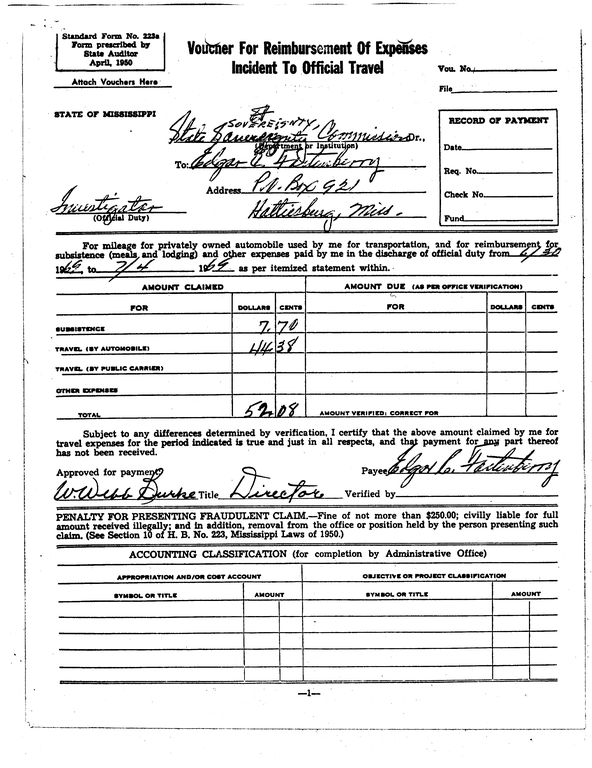 Standard Form No. 223a
Form prescribed by
State Auditor
April, 1950
Attach Vouchers Here
Voucher For Reimbursement Of Expenses
Incident To Official Travel
Vou. No.
File
STATE OF MISSISSIPPI
SOVEREIGNTY
State Commission Dr.,
(Department or Institution)
To: Edgar C. Fortenberry
Address P.O. Box 921
Hattiesburg, Miss.
Investigator
(Official Duty)
RECORD OF PAYMENT
Date
Req. No.
Check No.
Fund
For mileage for privately owned automobile used by me for transportation, and for reimbursement for
subsistence (meals and lodging) and other expenses paid by me in the discharge of official duty from 6/30
1969 to 7/4 1969 as per itemized statement within.
AMOUNT CLAIMED AMOUNT DUE (AS PER OFFICE VERIFICATION)
FOR DOLLARS CENTS FOR DOLLARS CENTS
SUBSISTENCE 7. 70
TRAVEL (BY AUTOMOBILE) 44 38
TRAVEL (BY PUBLIC CARRIER)
OTHER EXPENSES
TOTAL 52 08 AMOUNT VERIFIED; CORRECT FOR
Subject to any differences determined by verification, I certify that the above amount claimed by me for
travel expenses for the period indicated is true and just in all respects, and that payment for any part thereof
has not been received.
Approved for payment: Payee Edgar C. Fortenberry
W. Webb Burke Title Director Verified by
PENALTY FOR PRESENTING FRAUDULENT CLAIM.—Fine of not more than $250.00; civilly liable for full
amount received illegally; and in addition, removal from the office or position held by the person presenting such
claim. (See Section 10 of H. B. No. 223, Mississippi Laws of 1950.)
ACCOUNTING CLASSIFICATION (for completion by Administrative Office)
APPROPRIATION AND/OR COST ACCOUNT OBJECTIVE OR PROJECT CLASSIFICATION
SYMBOL OR TITLE AMOUNT SYMBOL OR TITLE AMOUNT
—1—